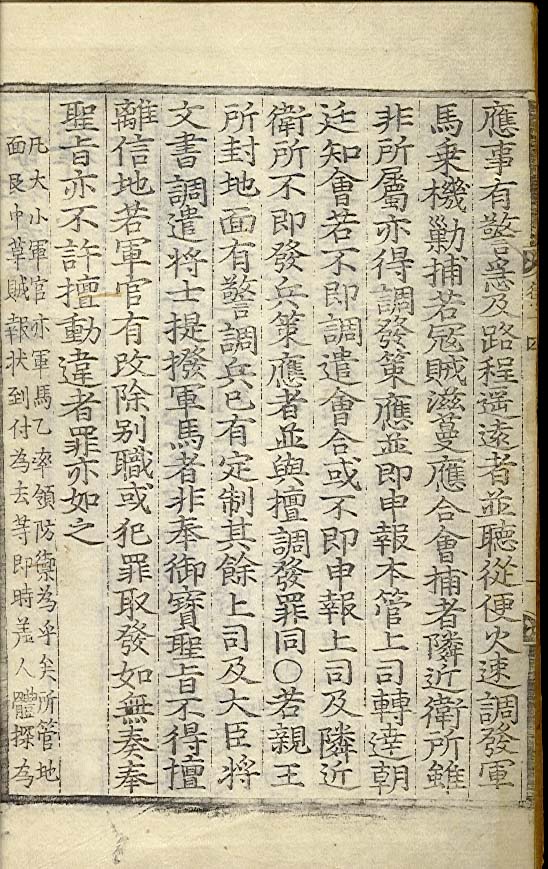 應事有警急及路程遥遠者並聽從便火速調發軍
馬乗機勦捕若冦賊滋蔓應合會捕者隣近衛所雖
非所屬亦得調發策應並即申報本管上司轉達朝
廷知會若不即調遣會合或不即申報上司及隣近
衛所不即發兵策應者並與擅調發罪同○若親王
所封地面有警調兵已有定制其餘上司及大臣將
文書調遣將士提撥軍馬者非奉御寶聖旨不得擅
離信地若軍官有改除别職或犯罪取發如無奏奉
聖旨亦不許擅動違者罪亦如之
凡大小軍官亦軍馬乙率領防禦為乎矣所管地
面良中草賊報状到付為去等即時差人體探為